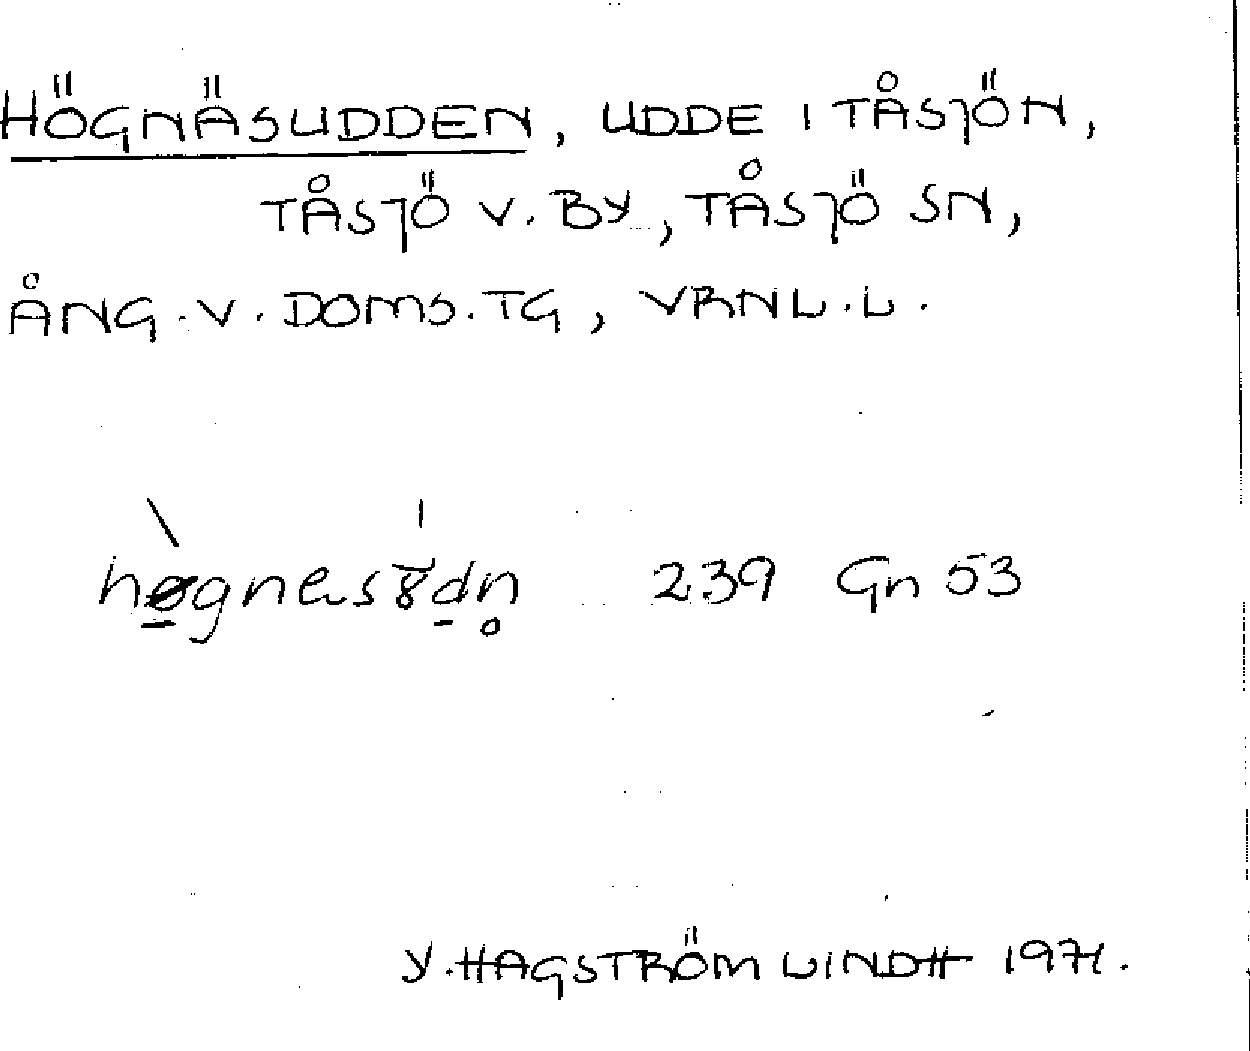 HÖGNÄSUDDEN, UDDE I TÅSJÖN,
TÅSJÖ V. BY, TÅSJÖ SN,
ÅNG. V. DOMS. TG, VRNL. L.
høgnesɤdn̥ 239 Gn 53
Y. HAGSTRÖM LINDH 1971.